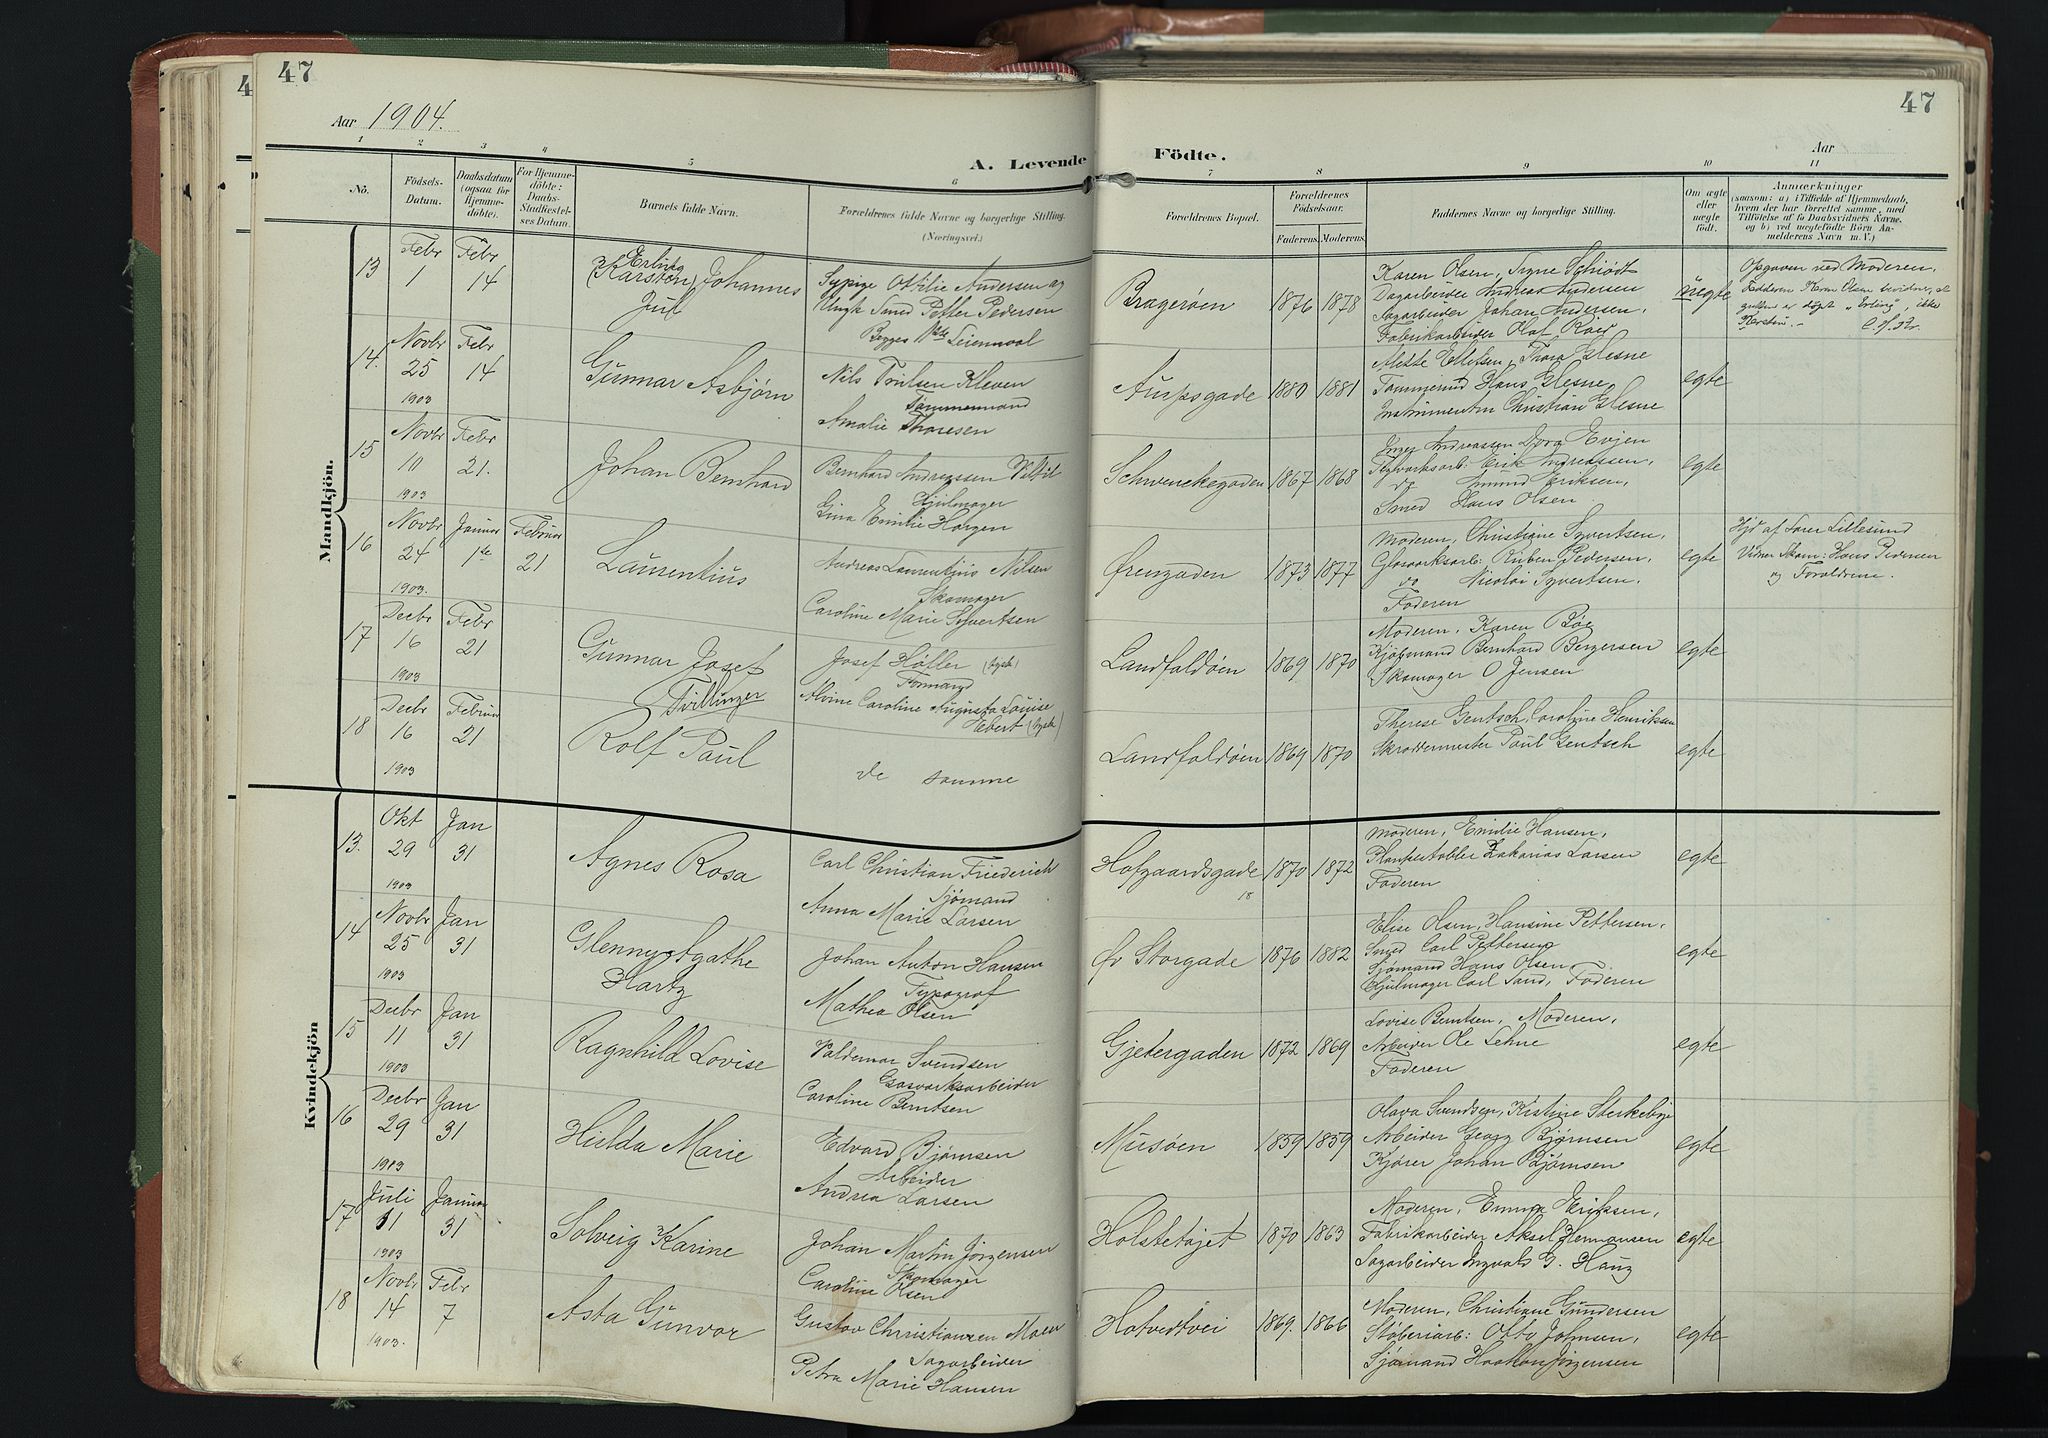 47
47
Aar 1904.
Aar
A. Levende Födte.
1 2 3 4 5 6 7 8 9 10 11
No.
Födsels-Datum.
Daabsdatum (ogsaa for Hjemmedöbte).
For Hjemmedöbte: Daabs-Stadfæstelses Datum.
Barnets fulde Navn.
Forældrenes fulde Navne og borgerlige Stilling.
(Næringsvei.)
Forældrenes Bopæl.
Forældrenes Födselsaar.
Faderens. Moderens.
Faddernes Navne og borgerlige Stilling.
Om ægte eller uægte födt.
Anmærkninger
(saasom: a) i Tilfælde af Hjemmedaab, hvem der har forrettet samme, med Tilföielse af to Daabsvidners Navne. og b) ved uægtefödte Börn Anmelderens Navn m. V.)
Mandkjön.
13 Febr 1 Febr 14
Erling
(Karsten) Johannes
Juul
Sypige Othilie Andersen og
Ungk Smed Petter Pedersen
Begges
Bragerøen 1876 1878
Karen Olsen, Signe Schiødt
Dagarbeider Andreas Andersen
Sagarbeider Johan Andersen,
Fabrikarbeider Olaf
uægte
Opgaven ved Moderen.
Fadderen Karen Olsen
gutten er døpt "Erling", ikke
Karsten. -
14. Novbr 25 1903 Febr 14
Gunnar Asbjørn
Nils Kleven
Tømmermand
Amalie Thoresen
gade 1880 1881
Mette Ellefsen, Thora Glesne
Hans Glesne
Christian Glesne
egte
15 Novbr 10 1903 Febr 21.
Johan Bernhard
Bernhard Andreassen
Hjulmager
Gina Emilie Horgen
Schwenckegaden 1867 1868
Inger Andreassen Dora Evjen
Erik Andreassen,
do Amund Eriksen,
Smed Hans Olsen
egte
16 Novbr 24 1903. Januar 1ste Februar 21
Laurentius
Andreas Laurentius Nilsen
Skomager
Caroline Marie Syvertsen
Ørengaden 1873 1877
Moderen, Christiane Syvertsen,
Glasværksarb: Ruben Pedersen,
do Nicolai Syvertsen,
Faderen
egte
Hjd af Lærer Lillesund
Vidner Skom: Hans Pedersen
og Forældrene.
17 Decbr 16 1903 Febr 21
Gunnar Josef
Tvillinger
Josef Höller (tysk)
Formand
Alvine Caroline Augusta Louise
Ebert (tysk)
Landfaldøen 1869 1870
Moderen, Karen Bøe
Kjøbmand Bernhard Bergersen
Skomager O Jensen
egte
18 Decbr 16 1903 Februar 21
Rolf Paul
de samme
Landfaldøen 1869 1870
Therese Gentsch, Caroline Henriksen
Skræddermester Paul Gentsch
egte
Kvindekjön
13. Okt 29 1903 Jan 31
Agnes Rosa
Carl Christian Friederich
Sjømand
Anna Marie Larsen
Hofgaardsgade 18 1870 1872
Moderen, Emilie Hansen,
Zakarias Larsen
Faderen
egte
14 Novbr 25 1903 Jan 31
Glenny Agathe
Hartz
Johan Anton Hansen
Typograf
Mathea Olsen
Øv Storgade 1876 1882
Elise Olsen, Hansine Pettersen,
Smed Carl Pettersen
Sjømand Hans Olsen,
Hjulmager Carl Sand, Faderen
egte
15 Decbr 11 1903 Jan 31
Ragnhild Lovise
Valdemar Svendsen
Gasværksarbeider
Caroline Berntsen
Gjetergaden 1872 1869
Lovise Berntsen, Moderen,
Arbeider Ole Lehne
Faderen
egte
16 Decbr 29 1903 Jan 31
Hilda Marie
Edvard Bjørnsen
Arbeider
Andrea Larsen
Musøen 1859 1859
Olava Svendsen, Kistine Sterkebye
Arbeider Georg Bjørnsen
Kjører Johan Bjørnsen
egte
17 Juli 11 1903 Januar 31
Solveig Karine
Johan Martin Jörgensen
Skomager
Caroline Olsen
Holstetøjet 1870 1863
Moderen, Emma Eriksen,
Fabrikarbeider Aksel Hermansen
Sagarbeider Ingvald G. Haug
egte
18 Novbr 14 1903. Febr 7
Asta Gunvor
Gustav Christiansen Moen
Sagarbeider
Petra Marie Hansen
Hotvedtvei 1869. 1866
Moderen, Christiane Gundersen
Støberiarb: Otto Johnsen,
Sjømand Haakon Jörgensen
egte